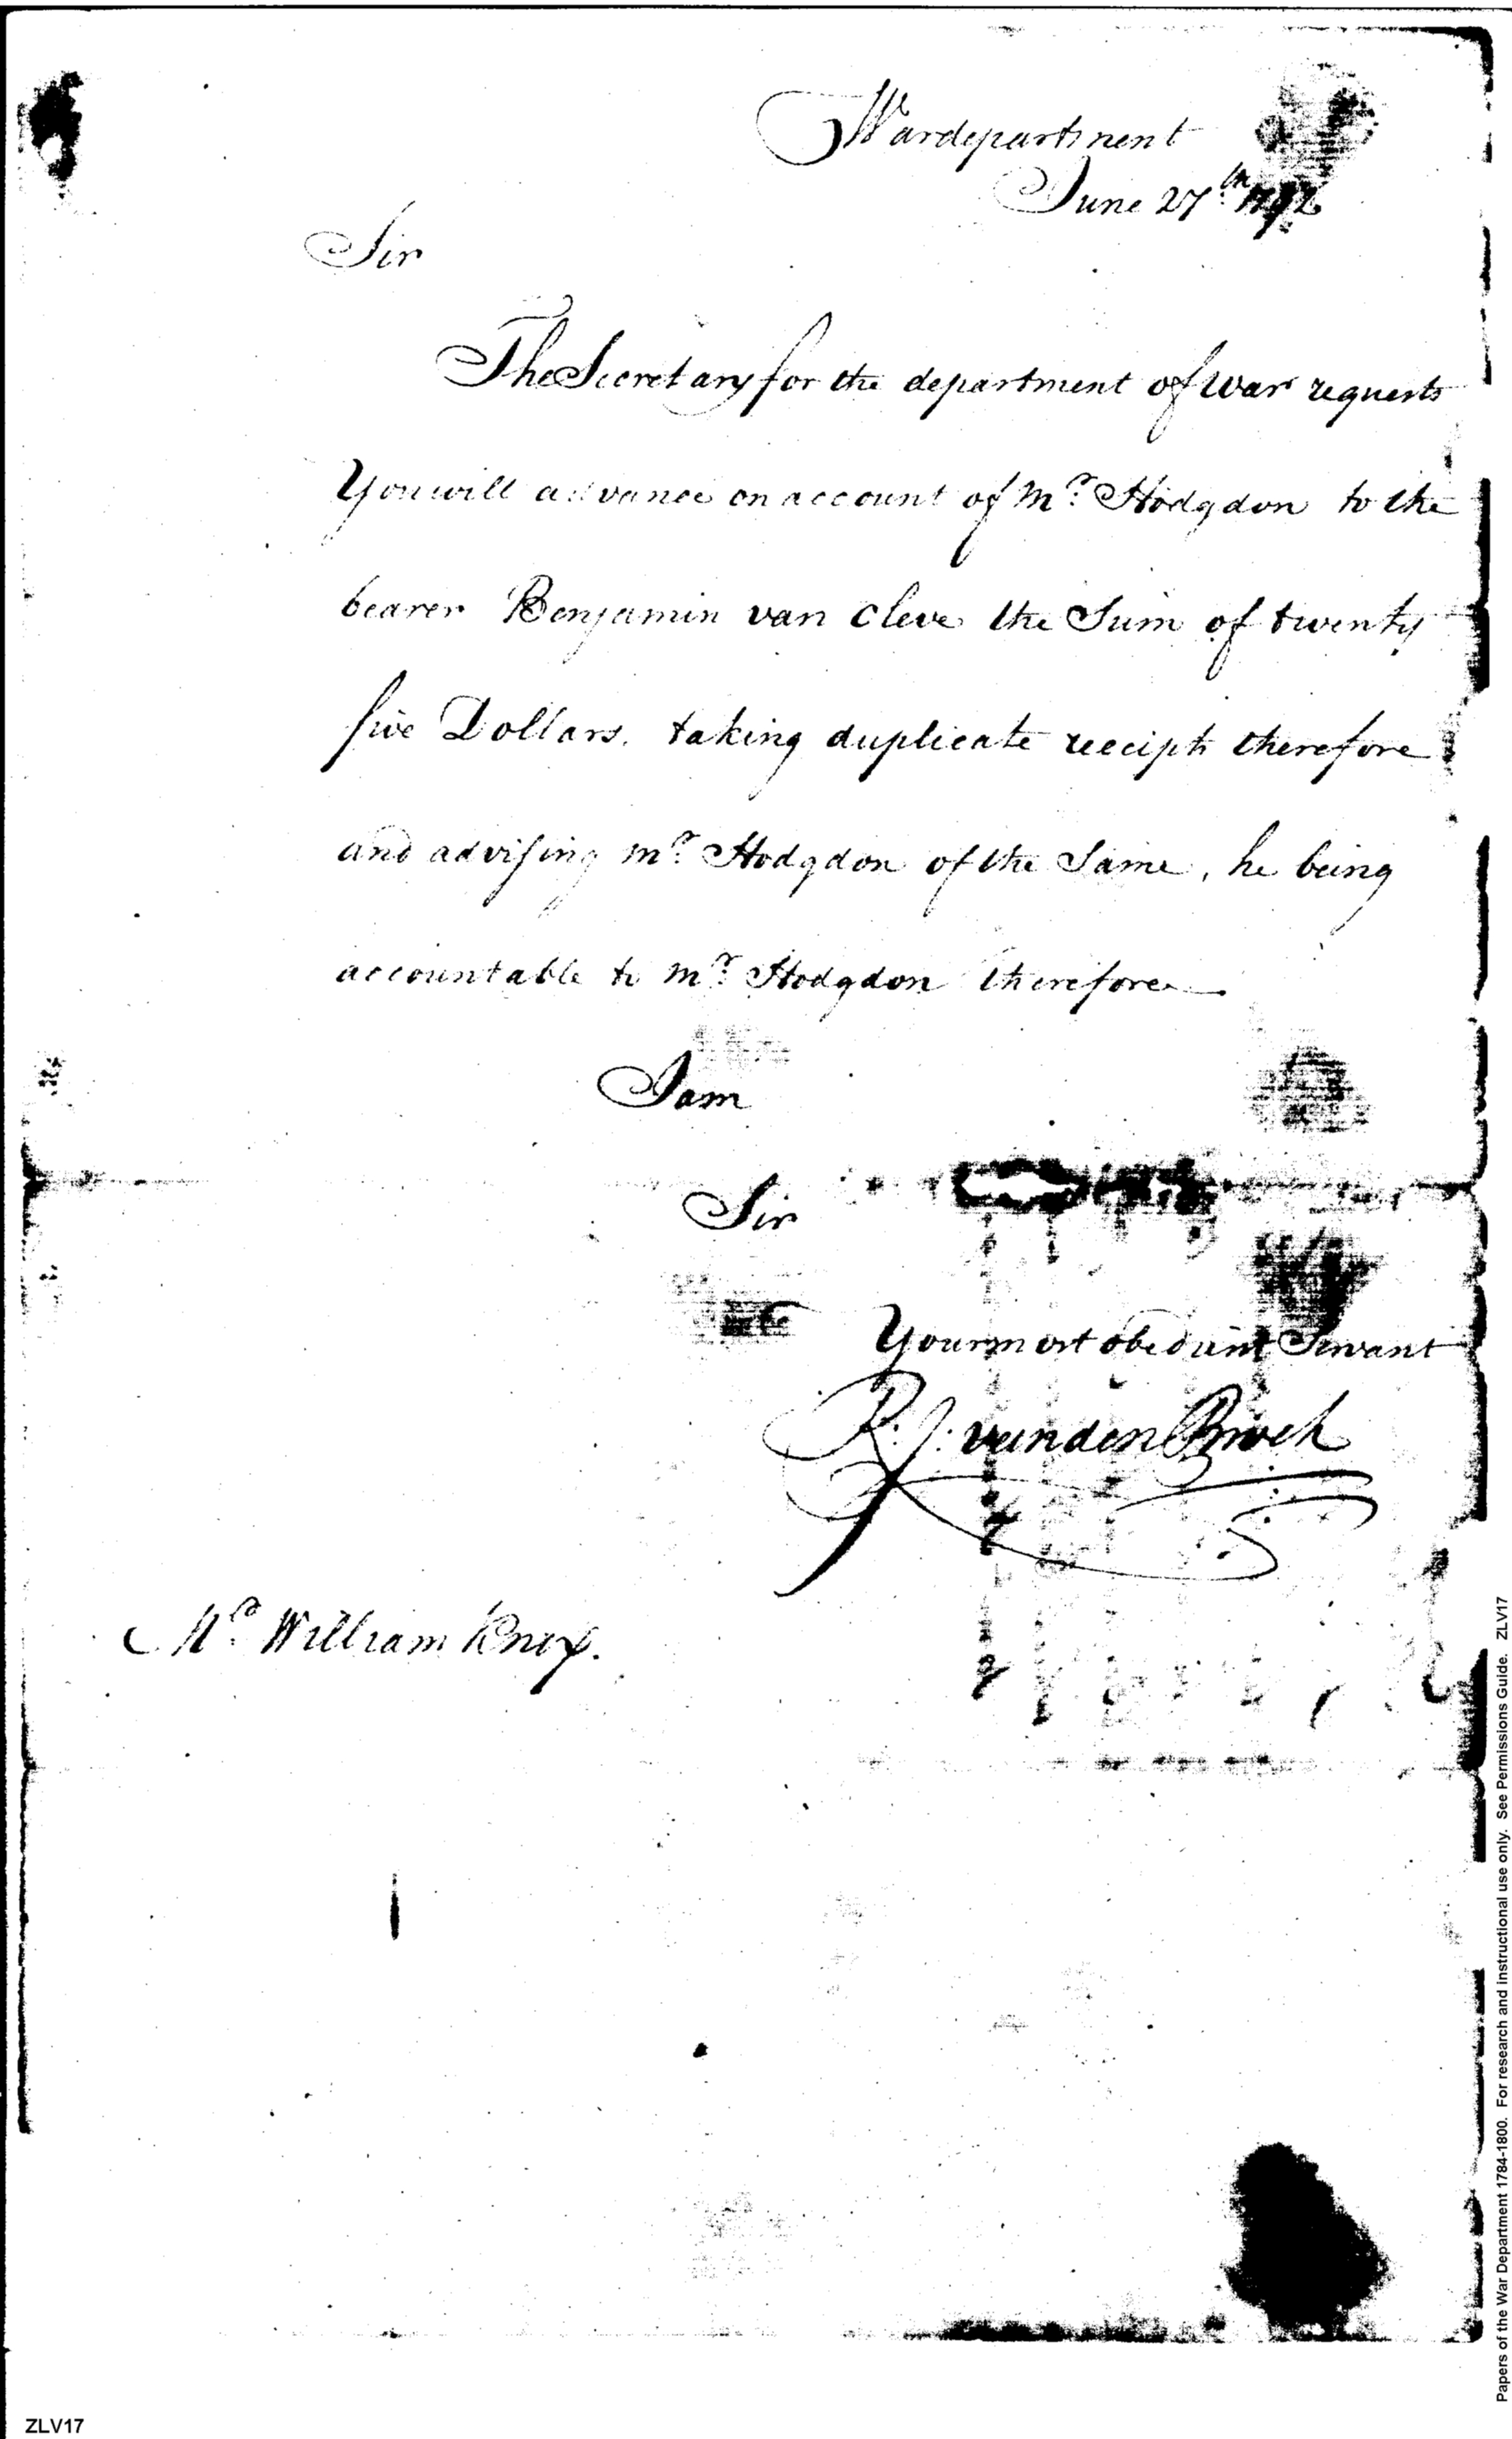 Wardepartment
June 27th 1792
Sir
The Secretary for the department of War requests
You will advance on account of Mr. Hodgdon to the
bearer Benjamin van Cleve the Sum of twenty
five Dollars, taking duplicate receipts therefore
and advising Mr. Hodgdon of the Same, he being
accountable to Mr. Hodgdon therefore
I am
Sir
Your most obedient Servant
R: J: vanden Broek
Mr. William Knox.
Papers of the War Department 1784-1800. For research and instructional use only. See Permissions Guide. ZLV17
ZLV17